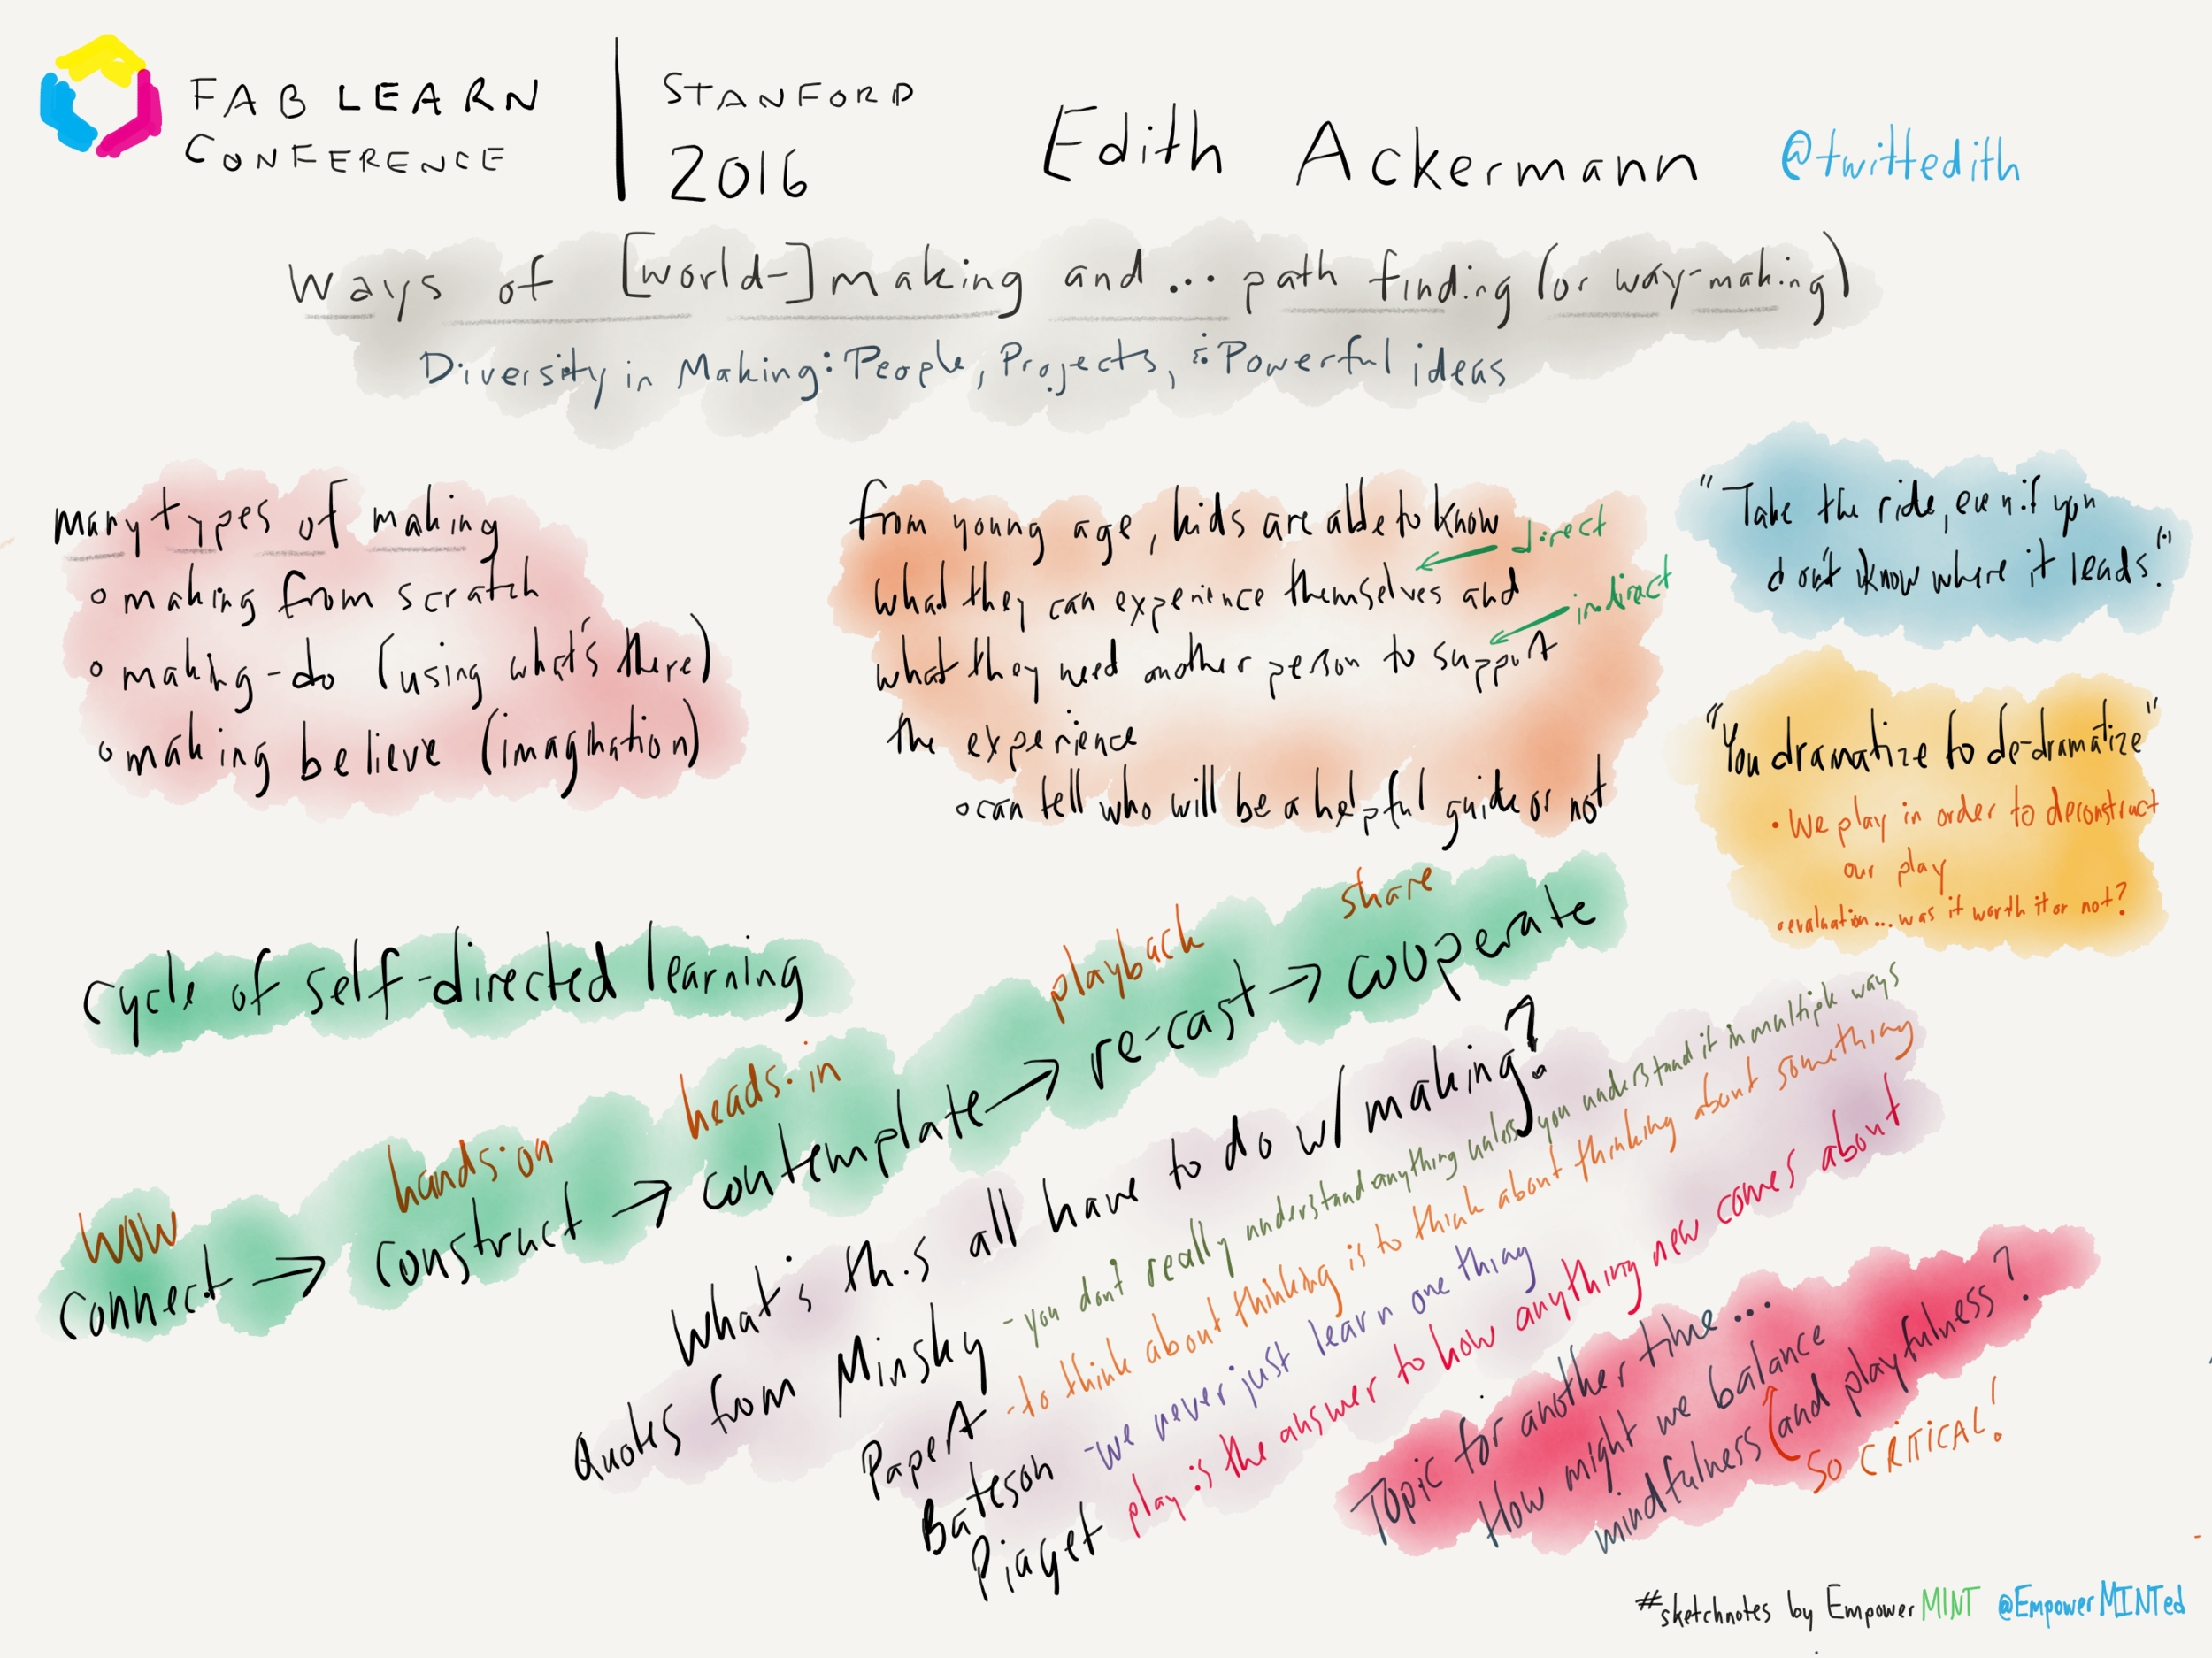 FAB LEARN
CONFERENCE
STANFORD
2016
Edith Ackermann
@twittedith
Ways of [world-]making and... path finding (or way-making)
Diversity in Making: People, Projects, & Powerful ideas
many types of making
making from scratch
making-do (using what's there)
making believe (imagination)
from young age, kids are able to know
direct
what they can experience themselves and
indirect
what they need another person to support
the experience
can tell who will be a helpful guide or not
"Take the ride, even if you
don't know where it leads."
"You dramatize to de-dramatize"
• We play in order to deconstruct
our play
• evaluation... was it worth it or not?
cycle of self-directed learning
wow
hands-on
heads-in
playback
share
connect → construct → contemplate → re-cast → cooperate
What's this all have to do w/ making?
Quotes from Minsky - you don't really understand anything unless you understand it in multiple ways
Papert - to think about thinking is to think about thinking about something
Bateson - we never just learn one thing
Piaget play is the answer to how anything new comes about
Topic for another time...
How might we balance
mindfulness and playfulness?
SO CRITICAL!
#sketchnotes by EmpowerMINT @EmpowerMINTed